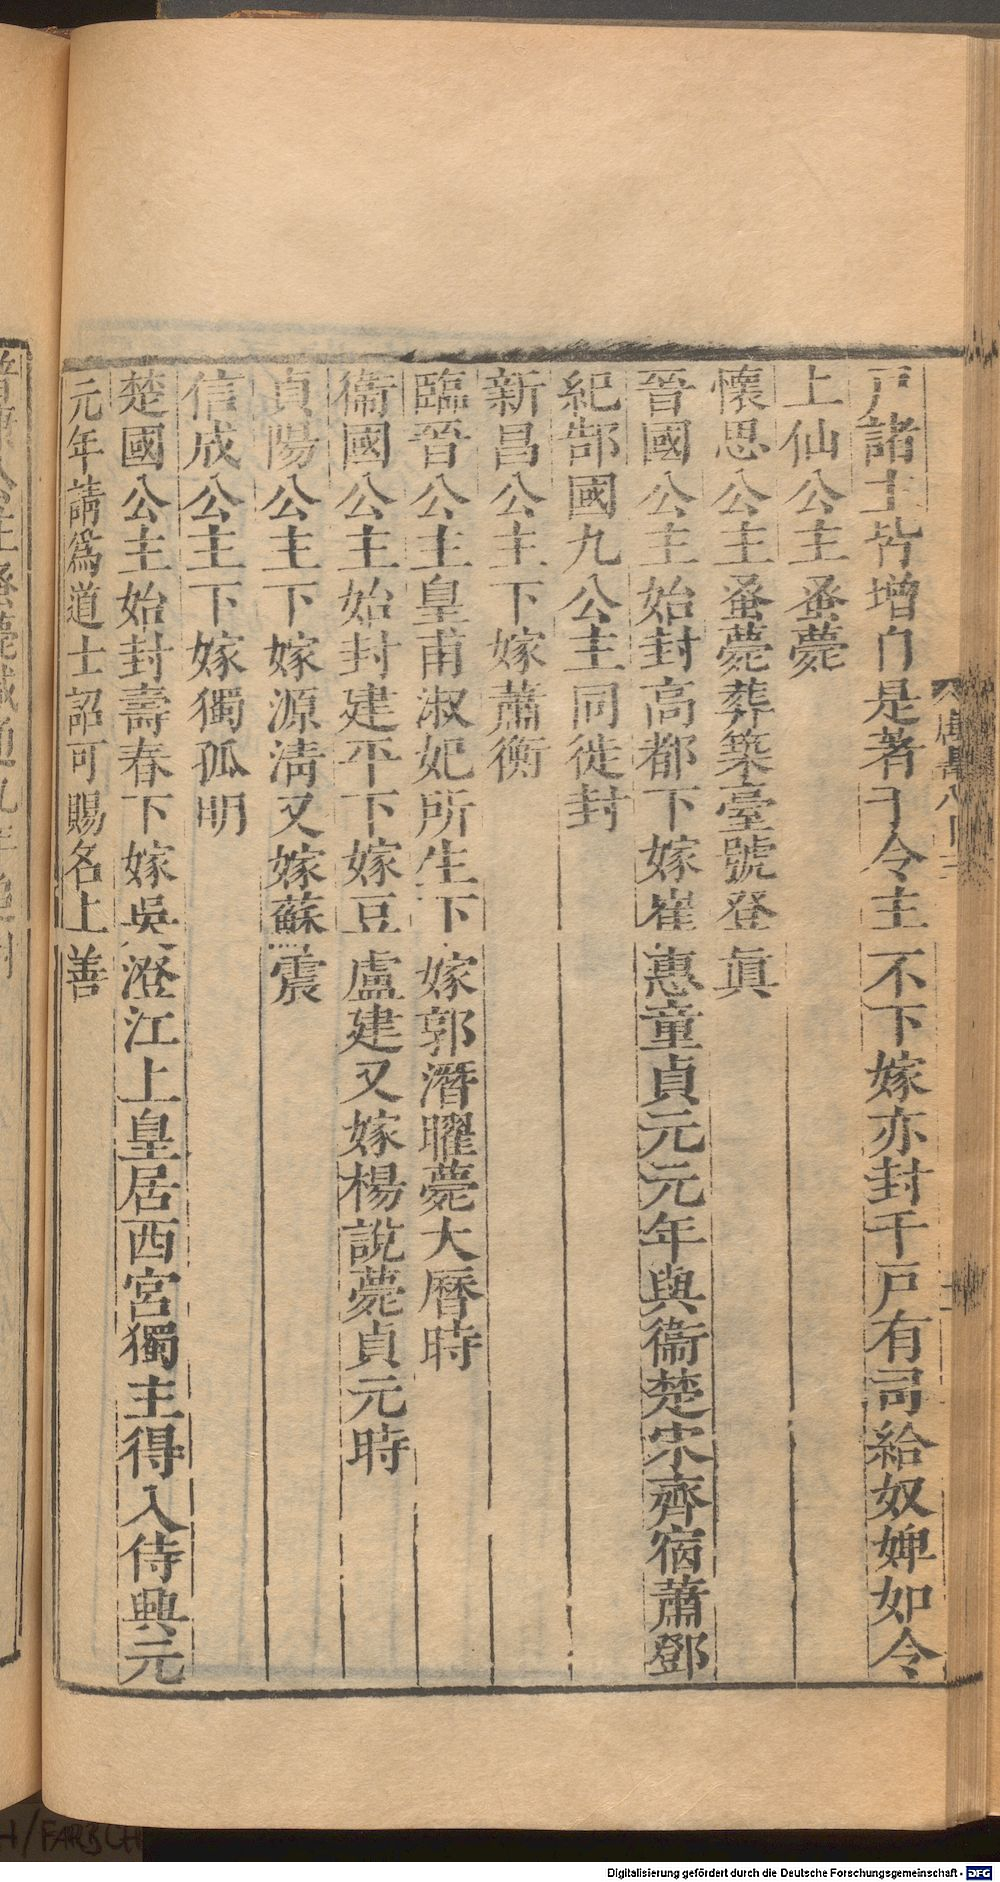 戸諸主皆增自是著于令主不下嫁亦封千戸有司給奴婢如令
上仙公主蚤薨
懷思公主蚤薨葬築臺號登眞
晉國公主始封高都下嫁崔惠童貞元元年與衞楚宋齊宿蕭鄧
紀郜國九公主同徙封
新昌公主下嫁蕭衡
臨晉公主皇甫淑妃所生下嫁郭潛曜薨大曆時
衞國公主始封建平下嫁豆盧建又嫁楊說薨貞元時
貞陽公主下嫁源淸又嫁蘇震
信成公主下嫁獨孤明
楚國公主始封壽春下嫁吳澄江上皇居西宮獨主得入侍興元
元年請爲道士詔可賜名上善
Digitalisierung gefördert durch die Deutsche Forschungsgemeinschaft - DFG